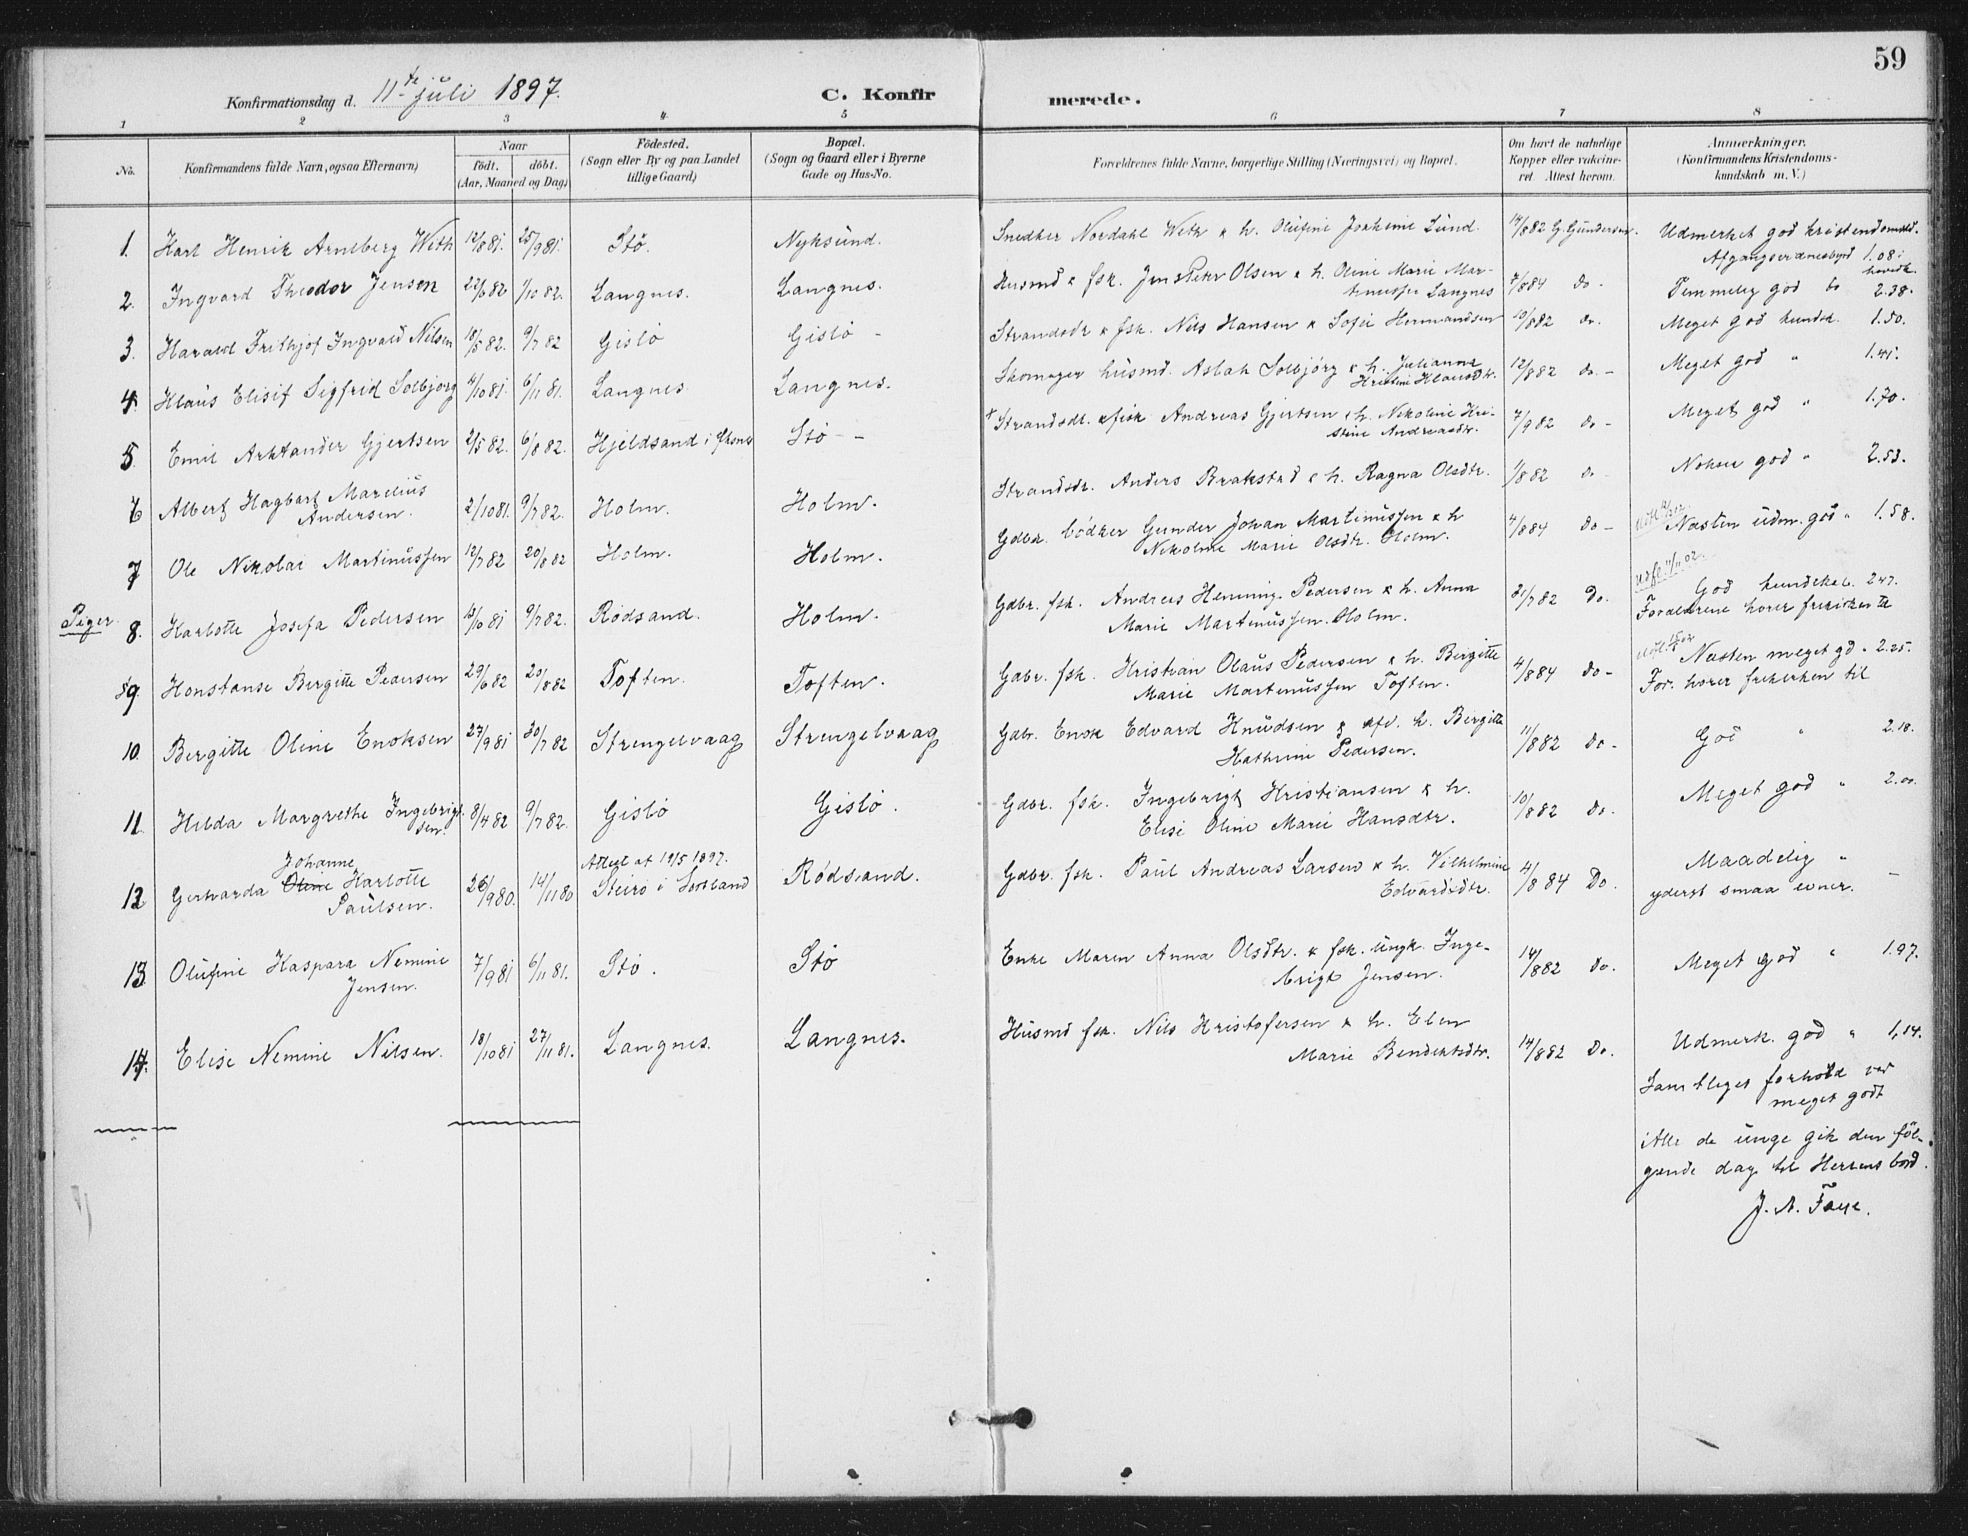 59
Konfirmationsdag d. 11te juli 1897.
C. Konfirmerede.
1 2 3 4. 5 6 7 8
No.
Konfirmandens fulde Navn, ogsaa Efternavn)
Naar
födt. döbt.
(Aar, Maaned og Dag)
Födested.
(Sogn eller By og paa Landet
tillige Gaard)
Bopæl.
(Sogn og Gaard eller i Byerne
Gade og Hus-No.
Forældrenes fulde Navne, borgerlige Stilling (Næringsvei) og Bopæl.
Om havt de naturlige
Kopper eller vakcine-
ret. Attest herom.
Anmærkninger.
(Konfirmandens Kristendoms-
kundskab m. V.)
1. Karl Henrik Arntberg Weth 12/8 81. 25/9 81. Stö. Nyksund. Snedker Nordahl Weth & h. Olufine Joakimi Lund. 14/882 G. Gundersen. Udmerket god kristendomskl.
Afgangsvidnesbyrd 1.08
2. Ingvard Theodor Jensen 22/6 82 1/10 82. Langnes. Langnes. Husmd & fsk. Jens Peter Olsen & h. Oline Marie Mar-
tinussen Langnes 7/884 do. Temmelig god do 2.38.
3. Harald Frithjof Ingvald Nilsen 10/5 82. 9/7 82 Gislö Gislö - Strandsdr & fsk. Nils Hansen & Sofie Hermandsen 10/882 do. Meget god kundsk. 1.50.
4. Klaus Elisif Sigfred Solbjörg 4/10 81 6/11 81. Langnes Langnes. Skomager husmd. Aslak Solbjörg & h. Julianne
Kristine Klausdtr. 12/882 do. - Meget god " 1.41.
5. Emil Arktander Gjertsen 2/5 82. 6/8 82. Hjeldsand i Öksnes Stö - - Strandsdr. & fisk Andreas Gjertsen & h. Nikoline Kri-
stine Andreasdtr. 7/9 82 do - Meget god " 1.70.
6 Albert Hagbart Marelius
Andersen. 2/10 81. 9/7 82. Holm. Holm. Strandsdr. Anders Brakstad & h. Ragna Olsdtr. 1/882 do - Noksu god " 2.53.
7 Ole Nikolai Martinussen 12/7 82 20/8 82 Holm. Holm. Gdbr. bödker Gunder Johan Martinussen & h
Nikoline Marie Olsdtr. Holm. 4/884 do - Næsten udm. god " 1.58.
Piger.
8. Karlotte Josefa Pedersen 13/10 81 9/7 82. Rödsand. Holm. Gdbr. fsk. Andreas Henning Pedersen & h. Anna
Marie Martinussen. Holm. 31/7 82 Do. Udfl. 11/11 02. God kundskab. 247.
Forældrene hörer frikirken til
9 Konstanse Bergitte Pedersen 29/6 82 20/8 82 Toften. Toften. Gdbr. fsk. Kristian Olaus Pedersen & h. Bergitte
Marie Martinussen Toften. 4/884 do - Næsten meget gd. 2.25.
For. hörer frikirken til
10. Bergitte Oline Enoksen 27/9 81 30/7 82 Strengelvaag Strengelvaag Gdbr. Enok Edvard Knudsen & h. Bergitte
Kathrine Pedersen. 11/882 do - God " 2.18.
11 Hilda Margrethe Ingebrigt
sen 8/4 82 9/7 82. Gislö Gislö. Gdbr. fsk. Ingebrigt Kristiansen & h.
Elise Oline Marie Hansdtr. 10/882 do. Meget god " 2.00.
12 Gerharda Oline Johanne Karlotte
Paulsen. 26/9 80. 14/11 80 Attest af 19/5 1897.
Steirö i Sortland Rödsand. Gdbr. fsk. Paul Andreas Larsen & h. Vilhelmine
Edvardsdtr. 4/8 84 Do. Maadelig "
yderst smaa evner. -
13 Olufine Kaspara Nemine
Jensen. 7/9 81 6/11 81. Stö. Stö Enke Maren Anna Olsdtr. & fsk. ungk. Inge-
brigt Jensen. 14/882 do. Meget god " 1.97.
14. Elise Nemine Nilsen. 18/10 81 27/11 81. Langnes. Langnes. Husmd fsk. Nils Kristofersen & h. Elen
Marie Bendiktsdtr. 14/882 do. Udmerk. god " 1,14.
Samtliges forhold var
meget godt
Alle de unge gik den föl-
gende dag til Herrens bord.
J. A. Faye.